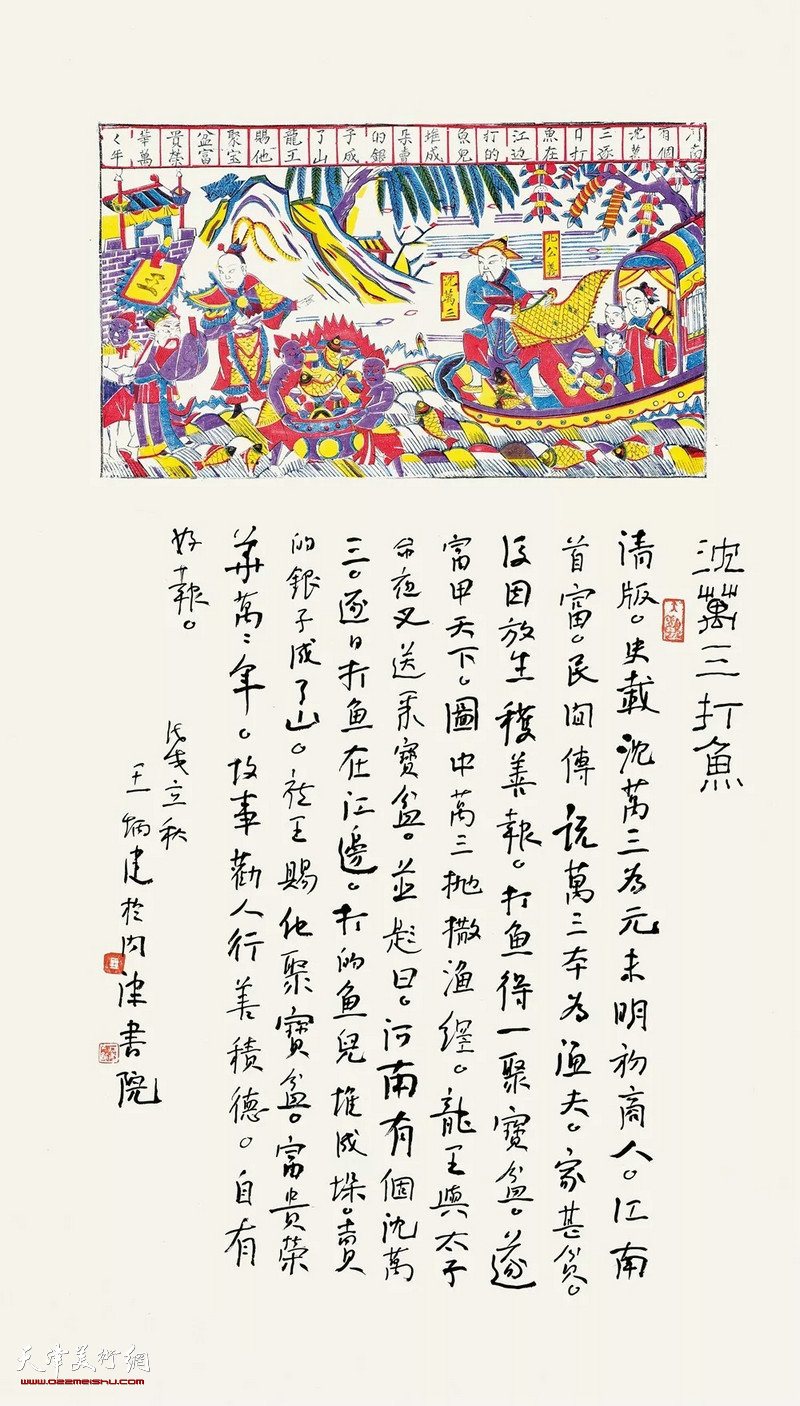 河南
有個
沈萬
三逐
日打
魚在
江边
打的
魚兒
堆成
朵賣
的銀
子成
了山
龍王
賜他
聚宝
盆富
貴荣
華萬
々年
沈萬三
沈萬三打魚
清版。史載沈萬三為元末明初商人。江南
首富。民间傳說萬三本為渔夫。家甚贫。
後因放生獲善報。打鱼得一聚寶盆。遂
富甲天下。圖中萬三抛撒渔網。龍王與太子
命夜叉送聚寶盆。並題曰。河南有個沈萬
三。逐日打鱼在江邊。打的鱼兒堆成垛。賣
的銀子成了山。龍王賜他聚寶盆。富贵榮
華萬々年。故事勸人行善積德。自有
好報。
戊戌立秋
王炳建於问津書院
天津美術網
www.022meishu.com